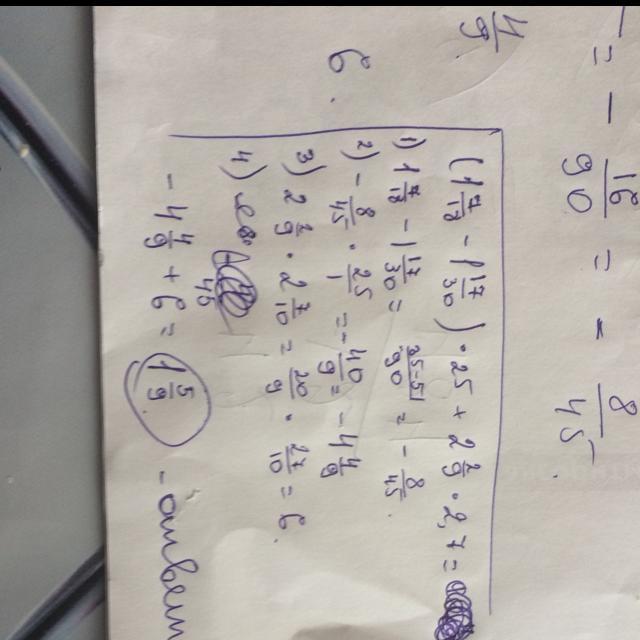 = - 16/90 = - 8/45.
4/9
6.
(1 7/18 - 1 17/30) · 25 + 2 2/9 · 2,7 =
1) 1 7/18 - 1 17/30 = 35-51/90 = - 8/45.
2) - 8/45 · 25/1 = - 40/9 = - 4 4/9
3) 2 2/9 · 2 7/10 = 20/9 · 27/10 = 6.
4)
- 4 4/9 + 6 = 1 5/9 - ответ